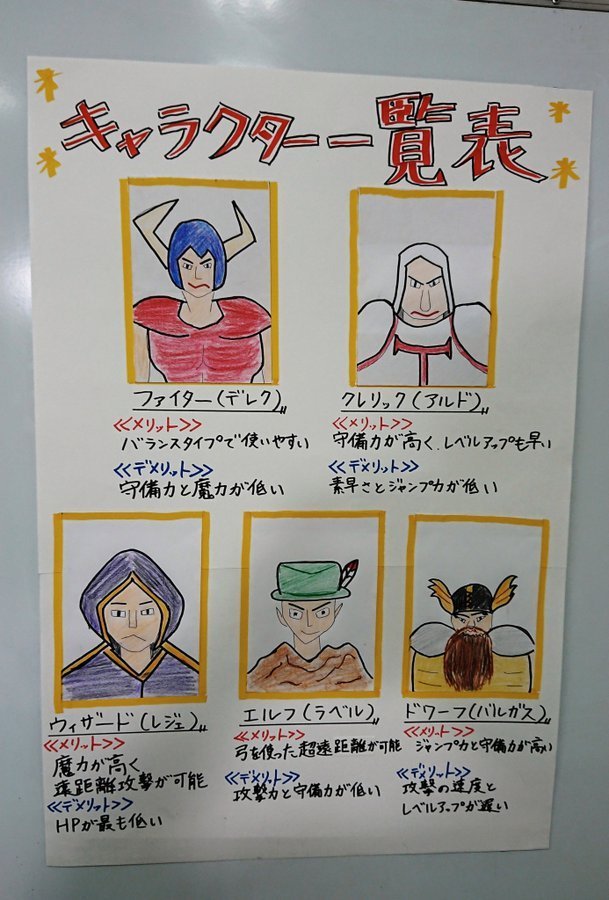 キャラクター一覧表
ファイター(デレク)
≪メリット≫
バランスタイプで使いやすい
≪デメリット≫
守備力と魔力が低い
クレリック(アルド)
≪メリット≫
守備力が高く、レベルアップも早い
≪デメリット≫
素早さとジャンプ力が低い
ウィザード(レジェ)
≪メリット≫
魔力が高く
遠距離攻撃が可能
≪デメリット≫
HPが最も低い
エルフ(ラベル)
≪メリット≫
弓を使った超遠距離が可能
≪デメリット≫
攻撃力と守備力が低い
ドワーフ(バルガス)
≪メリット≫
ジャンプ力と守備力が高い
≪デメリット≫
攻撃の速度と
レベルアップが遅い